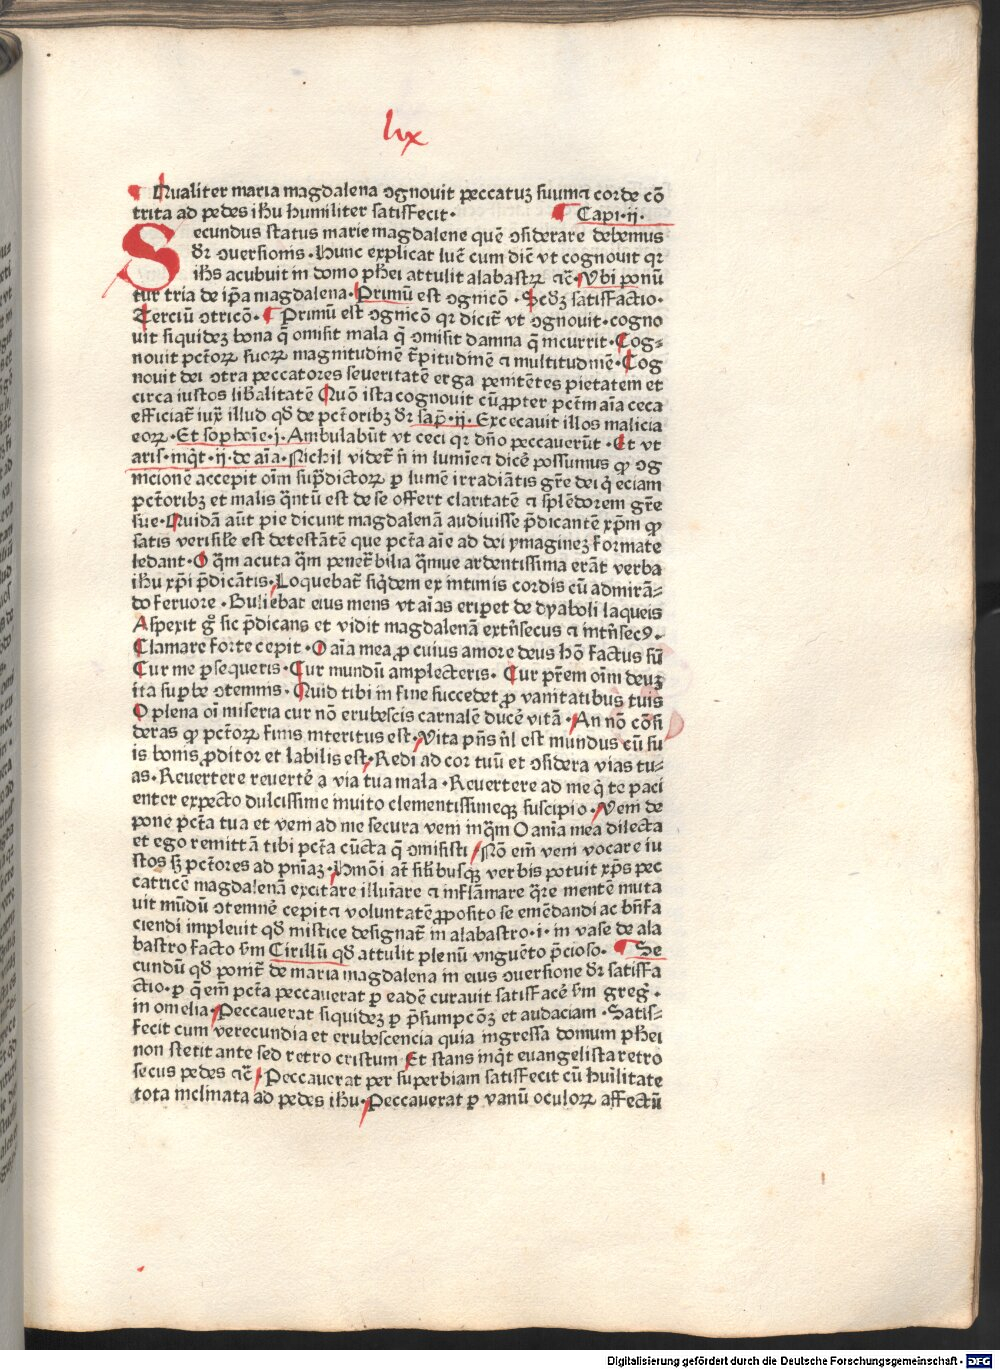 lix
Qualiter maria magdalena ɔgnovit peccatuʒ ſuum ⁊ corde cō
trita ad pedes ihu humiliter ſatiſfecit. Capi.ij.
Secundus ſtatus marie magdalene quē ɔſiderare debemus
dr ɔverſionis. Hunc explicat luē cum diē vt cognovit qr
ihs acubuit in domo phei attulit alabaſtꝝ ⁊c̄. Vbi ponū
tur tria de ip̄a magdalena. Primū eſt ɔgnicō. Sedʒ ſatiſfactio.
Terciū ɔtricō. Primū eſt ɔgnicō qr dicit̄ vt ɔgnovit. cogno
uit ſiquideʒ bona q̄ omiſit mala q̄ ɔmiſit damna q̄ incurrit. Cog⸗
novit pctoꝝ ſuoꝝ magnitudinē t̄pitudinē ⁊ multitudinē. Cog
novit dei ɔtra peccatores ſeveritatē erga penitētes pietatem et
circa iuſtos lib̄alitatē Quō iſta cognovit cū ꝓpter pctm aīa ceca
efficiat̄ iux̄ illud qd̄ de pctoribʒ dr ſap̄.ij. Excecavit illos malicia
eoꝝ. Et ſophoīe.i. Ambulabūt vt ceci qr dn̄o peccaverūt. Et vt
ariſ.inq̄t.ij.de aīa. Nichil videt̄ n̄ in lumīe ⁊ dicē poſſumus ꝙ ɔg
nicione accepit oīm ſup̄dictoꝝ p lumē irradiātis gr̄e dei q̄ eciam
pctoribʒ et malis q̄ntū eſt de ſe offert claritatē ⁊ ſplēdorem gr̄e
ſue. Quidā aūt pie dicunt magdalenā audiviſſe p̄dicantē xp̄m ꝙ
ſatis veriſile eſt deteſtātē que pctā aīe ad dei ymagineʒ formate
ledant. O q̄m acuta q̄m penet̄bilia q̄mue ardentiſſima erāt verba
ihu xp̄i p̄dicātis. Loquebat̄ ſiq̄dem ex intimis cordis cū admirā⸗
do fervore. Buliebat eius mens vt aīas eripet de dyaboli laqueis
Aſpexit g̊ ſic p̄dicans et vidit magdalenā extn̄ſecus ⁊ intn̄ſecꝯ.
Clamare forte cepit. O aīa mea ꝓ cuius amore deus hō factus ſū
Cur me pſequeris. Cur mundū amplecteris. Cur pr̄em oīm deuʒ
ita ſup̄be ɔtemnis. Quid tibi in fine ſuccedet ꝓ vanitatibus tuis
O plena oī miſeria cur nō erubeſcis carnalē ducē vitā. An nō cōſi
deras ꝙ pctoꝝ finis interitus eſt. Vita pn̄s n̄l eſt mundus cū ſu
is bonis ꝓditor et labilis eſt. Redi ad cor tuū et ɔſidera vias tu⸗
as. Revertere revertē a via tua mala. Revertere ad me q̄ te paci
enter expecto dulciſſime muito clementiſſimeqꝫ ſuſcipio. Veni de
pone pctā tua et veni ad me ſecura veni inq̄m O anīa mea dilecta
et ego remittā tibi pctā cūcta q̄ ɔmiſiſti Nō em̄ veni vocare iu
ſtos ſʒ pctores ad pn̄iaʒ. Hmōi at̄ ſil̄ibuſqꝫ verbis potuit xp̄s pec
catricē magdalenā excitare illuīare ⁊ inflāmare q̄re mentē muta
uit mūdū ɔtemnē cepit ⁊ voluntatē ꝓpoſito ſe emēdandi ac bn̄fa
ciendi implevit qd̄ miſtice deſignat̄ in alabaſtro.i. in vaſe de ala
baſtro facto ſm Cirillū qd̄ attulit plenū vnguēto p̄cioſo. Se
cundū qd̄ ponit̄ de maria magdalena in eius ɔverſione dr ſatiſfa
ctio. p q̄ em̄ pctā peccaverat p eadē curavit ſatiſfacē ſm greg̊.
in omelia. Peccaverat ſiquideʒ p p̄ſumpcōʒ et audaciam. Satiſ⸗
fecit cum verecundia et erubeſcencia quia ingreſſa domum phei
non ſtetit ante ſed retro criſtum Et ſtans inq̄t euangeliſta retro
ſecus pedes ⁊c̄. Peccaverat per ſuperbiam ſatiſfecit cū huīlitate
tota inclinata ad pedes ihu. Peccaverat p vanū oculoꝝ affectū
Digitalisierung gefördert durch die Deutsche Forschungsgemeinschaft - DFG